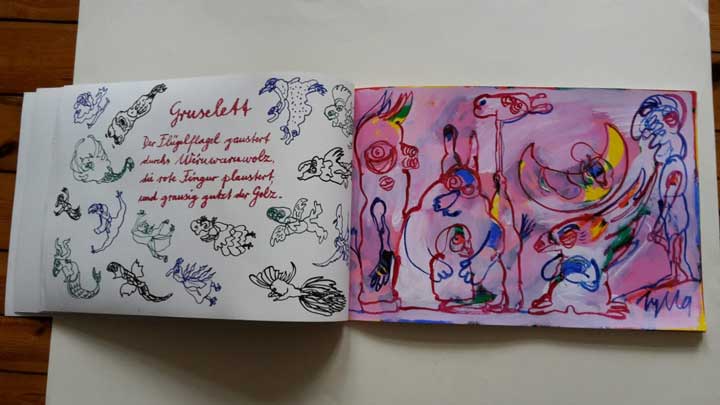 Gruselett
Der Flügelflagel gaustert
durchs Wiruwaruwolz,
die rote Fingur plaustert,
und grausig gutzt der Golz.